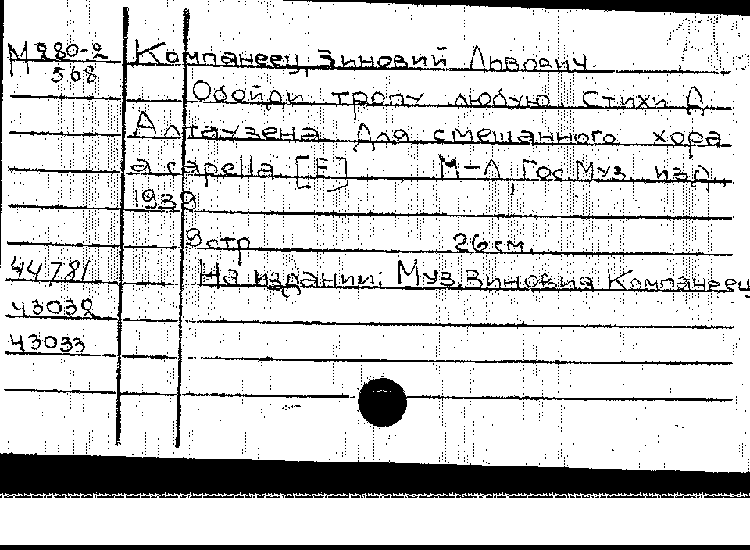 М280-2 Компанеец, Зиновий Львович
568
Обойди тропу любую. Стихи Д.
Алтаузена. Для смешанного хора
a capella. [E] М-Л, Гос. Муз. изд.,
1939
9 стр. 26 см.
44781 На издании: Муз. Зиновия Компанеец
43032
43033